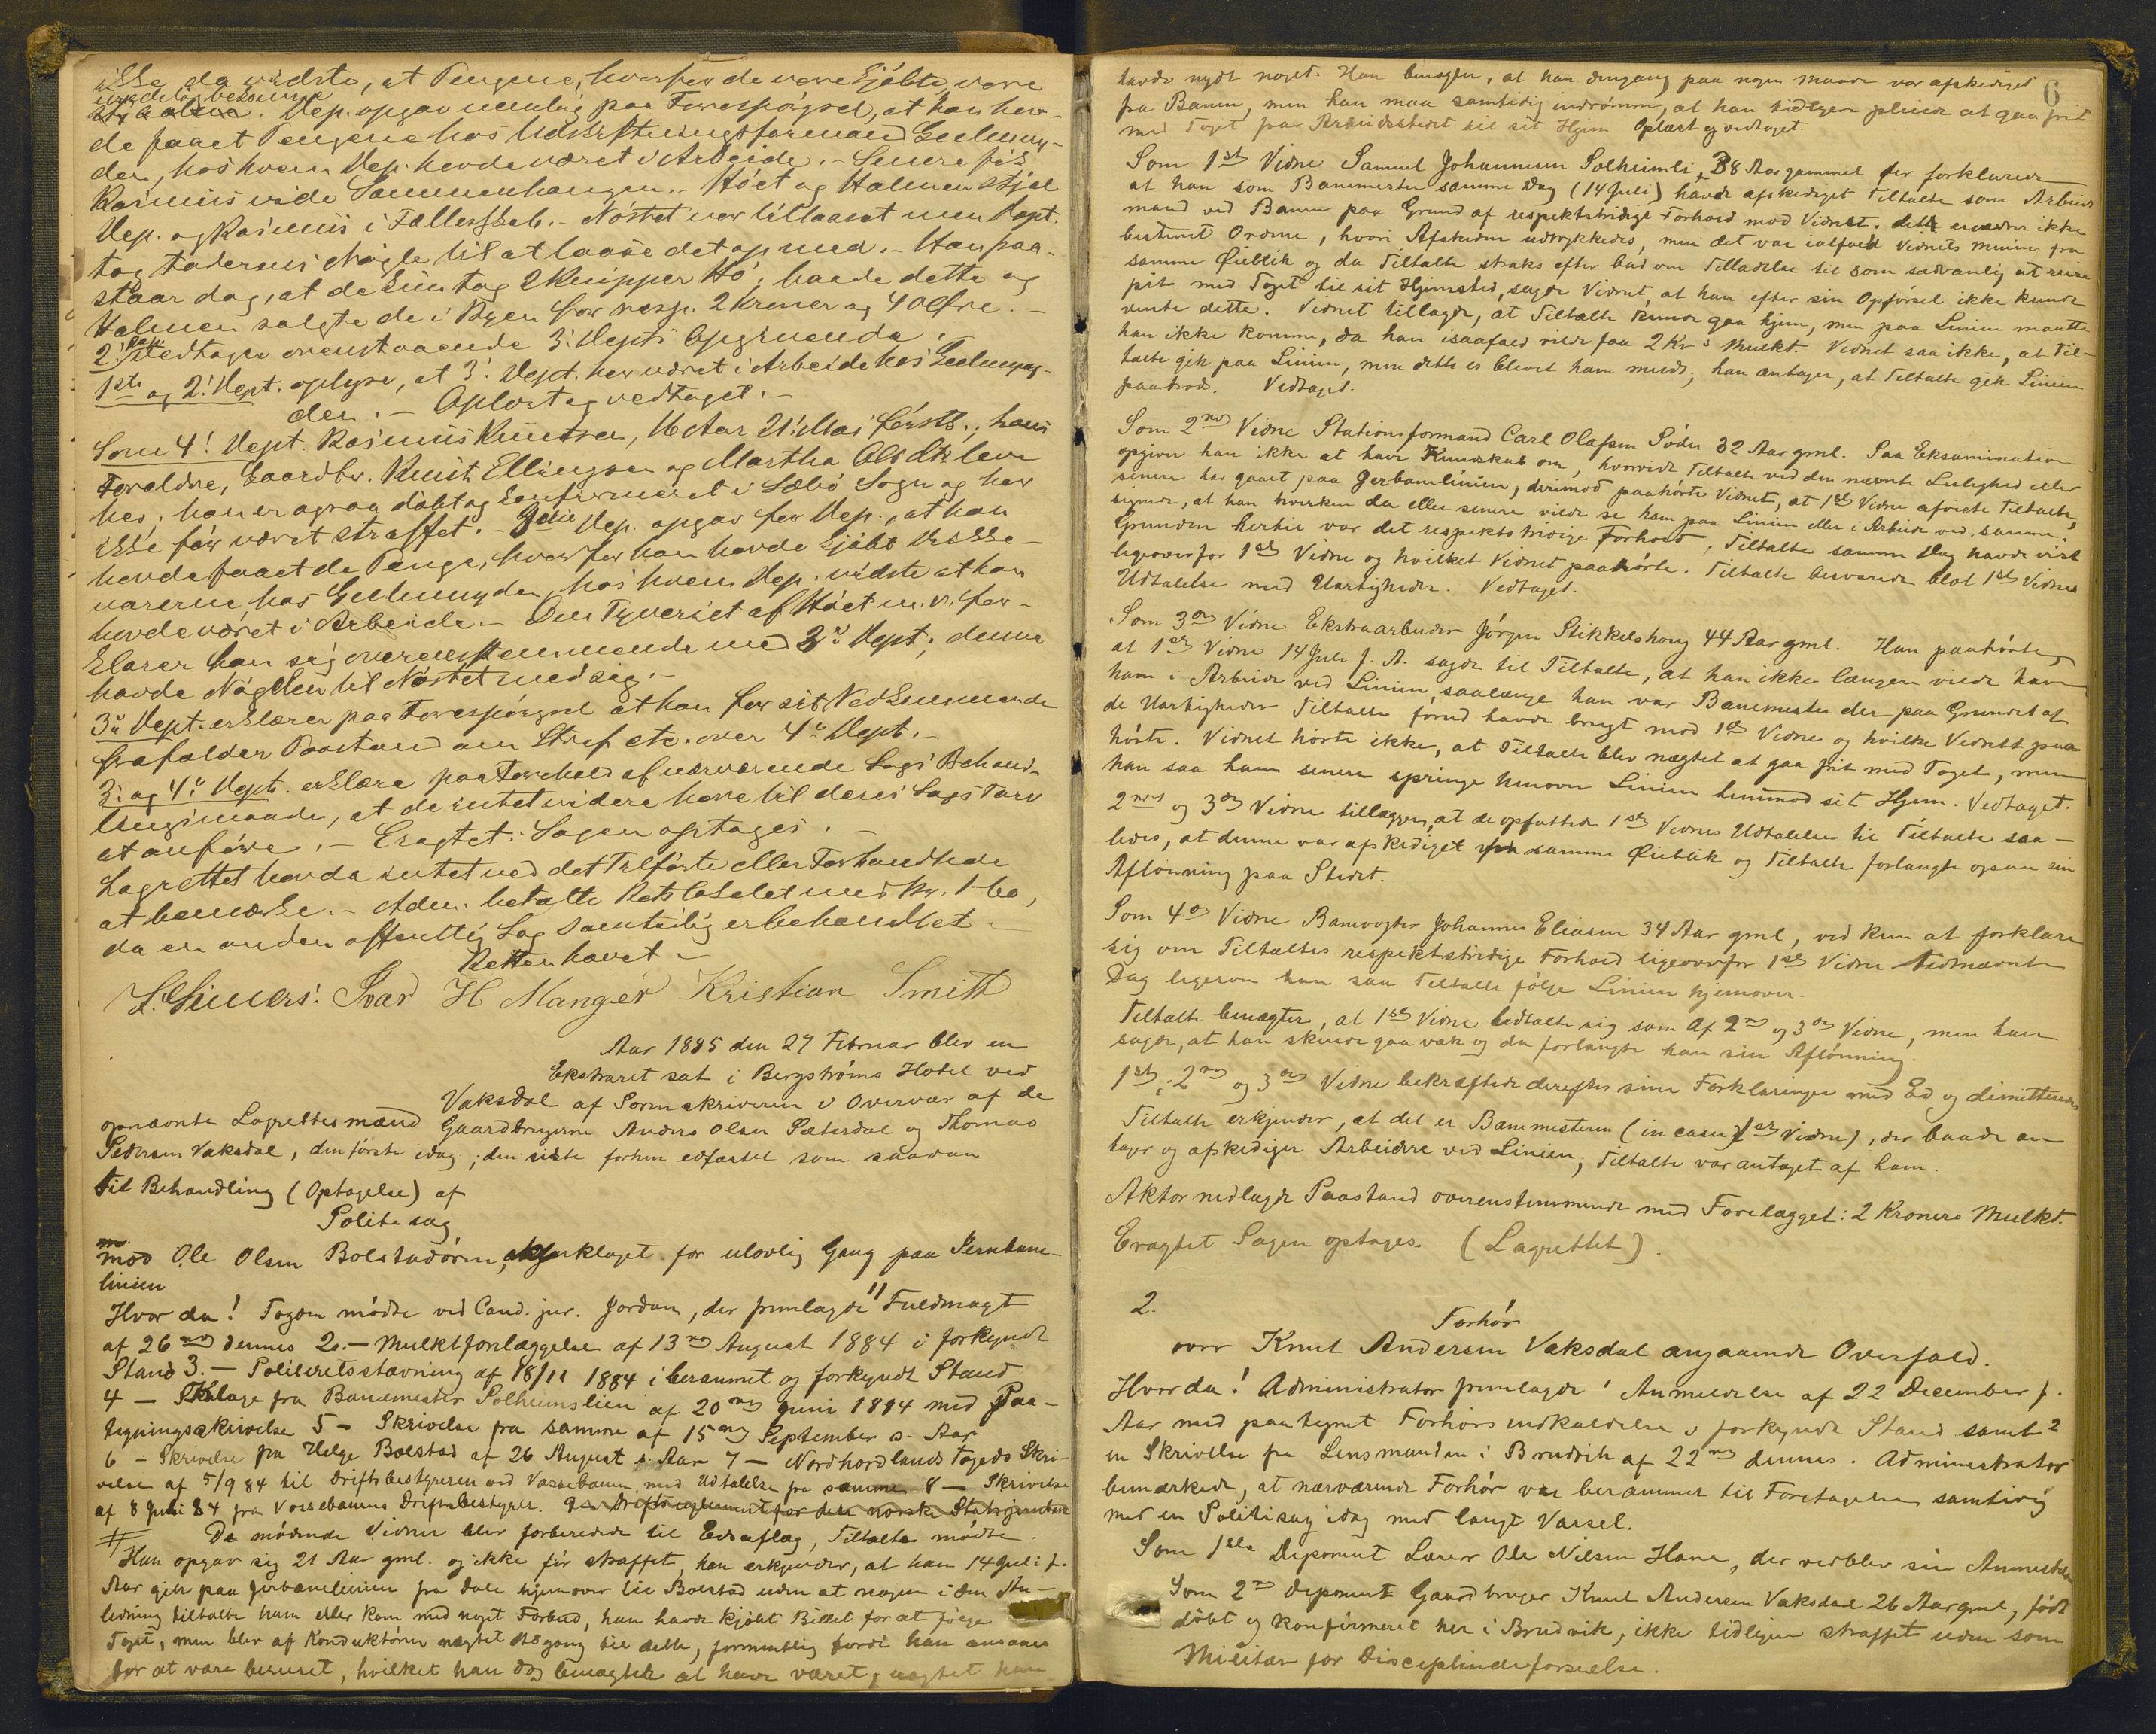 ikke da vidste, at Pengene, hvorfor de vare kjøbte, vare
Dep. opgav nemlig paa Forespørgsel, at han hav-
de faaet Pengene hos Udskiftningsformand Geelmuy-
den, hos hvem Dep. havde været i Arbeide. - Senere fik
Rasmus vide Sammenhængen. - Høet og Halmen stjal
Dep. og Rasmus i Fællesskab. - Nøstet var tillaaset men Dept.
tog Faderens Nøgle til at laase det op med. - Han paa-
staar dog, at de kun tog 2 Knipper Hø; baade dette og
Halmen solgte de i Byen for resp. 2 Kroner og 40 Øre. -
2. Dept. vedtager ovenstaaende 3. Depts Opgivende.
1ste og 2. Dept. oplyse, at 3. Dept. har været i Arbeide hos Geelmuy-
den. - Oplæst og vedtaget. -
Som 4. Dept. Rasmus Knutsen, 16 Aar 21. Mai førstk.; hans
Forældre, Gaardbr. Knut Ellingsen og Martha leve
her; han er ogsaa døbt og konfirmeret i Sogn og har
ikke før været straffet. - 3die Dep. opgav for Dep., at han
havde faaet de Penge, hvorfor han havde kjøbt
varerne hos Geelmuyden, hos hvem Dep. vidste at han
havde været i Arbeide. - Om Tyveriet af Høet m.v. for-
klarer han sig overensstemmende med 3. Dept; denne
havde Nøglen til Nøstet med sig. -
3. Dept. erklærer paa Forespørgsel at han for sit Vedkommende
frafalder Paastand om Straf etc. over 4. Dept. -
3. og 4. Dept. erklære paa Forehold af nærværende Sags Behand-
lingsmaade, at de intet videre have til deres Sags Tarv
at anføre. - Eragtet: Sagen optages. -
Lagrettet havde intet ved det Tilførte eller Forhandlede
at bemærke. - Adm. betalte Retslokalet med Kr. 1-60,
da en anden offentlig Sag samtidig er behandlet. -
Retten hævet. -
Ivar H Manger Kristian Smitt
Aar 1885 den 27 Februar blev en
Ekstraret sat i Bergstrøms Hotel ved
Vaksdal af Sorenskriveren i Overvær af de
opnævnte Lagrettesmænd Gaardbrugerne Anders Olsen Sæterdal og Thomas
Pedersen Vaksdal, den første idag; den sidste forhen edfæstet som saadan
til Behandling (Optagelse) af
Politisag
mod Ole Olsen Bolstadøren, anklaget for ulovlig Gang paa Jernbane-
linien
Hvor da! Fogden mødte ved Cand. jur. Jordan, der fremlagde 1) Fuldmagt
af 26nes dennes 2. - Mulktforelæggelse af 13nes August 1884 i forkyndt
Stand 3. - Politiretsstævning af 18/11 1884 i berammet og forkyndt Stand
4 - Klage fra Banemester Solheimslien af 20nes Juni 1884 med Paa-
tegningsskrivelse 5 - Skrivelse fra samme af 15nes September s. Aar
6 - Skrivelse fra Helge Bolstad af 26 August s. Aar 7 - Nordhordlands Fogeds Skri-
velse af 5/9 84 til Driftsbestyreren ved Vossebanen med Udtalelse fra samme 8 - Skrivelse
af 8 Juli 84 fra Vossebanens Driftsbestyrer. 9 - Driftsreglement for den norske Statsjernbane
De mødende Vidner blev forberedede til Edsaflæg, Tiltalte mødte.
Han opgav sig 21 Aar gml. og ikke før straffet, han erkjender, at han 14 Juli f.
Aar gik paa Jernbanelinien fra Dale hjemover til Bolstad uden at nogen i den An-
ledning tiltalte ham eller kom med noget Forbud, han havde kjøbt Billet for at følge
Toget, men blev af Konduktøren nægtet Adgang til dette, formentlig fordi han ansaaes
for at være beruset, hvilket han dog benægtede at have været, uagtet han
6
havde nydt noget. Han benægter, at han dengang paa nogen Maade var afskediget
fra Banen, men han maa samtidig indrømme, at han tidligere pleiede at gaa frit
med Toget fra Arbeidsstedet til sit Hjem Oplæst og vedtaget.
Som 1ste Vidne Samuel Johannesen Solheimsli, 38 Aar gammel der forklarede
at han som Banemester samme Dag (14 Juli) havde afskediget Tiltalte som Arbeids-
mand ved Banen paa Grund af respektstridige Forhold mod Vidnet. dette erindrer ikke
bestemt Ordene, hvori Afskeden udtrykkedes, men det var ialfald Vidnets Mening fra
samme Øieblik og da Tiltalte straks efter bad om Tilladelse til som sædvanlig at reise
frit med Toget til sit Hjemsted, sagde Vidnet, at han efter sin Opførsel ikke kunde
vente dette. Vidnet tillagde, at Tiltalte kunde gaa hjem, men paa Linien maatte
han ikke komme, da han isaafald vilde faa 2 Kr s Mulkt. Vidnet saa ikke, at Til-
talte gik paa Linien, men dette er blevet ham meldt; han antager, at Tiltalte gik Linien
paatrods. Vedtaget.
Som 2net Vidne Stationsformand Carl Olafsen Söder 32 Aar gml. Paa Eksamination
opgiver han ikke at have Kundskab om, hvorvidt Tiltalte ved den nævnte Leilighed eller
senere har gaaet paa Jernbanelinien, derimod paahørte Vidnet, at 1ste Vidne afviste Tiltalte,
sigende, at han hverken da eller senere vilde se ham paa Linien eller i Arbeide ved samme;
Grunden hertil var det respektstridige Forhold, Tiltalte samme Dag havde vist
ligeoverfor 1ste Vidne og hvilket Vidnet paahørte. Tiltalte besvarede blot 1ste Vidnes
Udtalelse med Uartigheder. Vedtaget.
Som 3die Vidne Ekstraarbeider Jørgen Stikkelshoug 44 Aar gml. Han paahørte,
at 1ste Vidne 14 Juli f. A. sagde til Tiltalte, at han ikke længere vilde have
ham i Arbeide ved Linien, saalænge han var Banemester der paa Grund af
de Uartigheder Tiltalte forud havde brugt mod 1ste Vidne og hvilke Vidnet paa-
hørte. Vidnet hørte ikke, at Tiltalte blev nægtet at gaa frit med Toget, men
han saa ham senere springe henover Linien henimod sit Hjem. Vedtaget.
2net og 3die Vidne tillægger, at de opfattede 1ste Vidnes Udtalelse til Tiltalte saa-
ledes, at denne var afskediget fra samme Øieblik og Tiltalte forlangte ogsaa sin
Aflønning paa Stedet.
Som 4de Vidne Banevogter Johannes Eliasen 34 Aar gml, ved kun at forklare
sig om Tiltaltes respektstridige Forhold ligeoverfor 1ste Vidne sidstnævnte
Dag ligesom han saa Tiltalte følge Linien hjemover.
Tiltalte benægter, at 1ste Vidne udtalte sig som af 2net og 3die Vidne, men han
sagde, at han skulde gaa væk og da forlangte han sin Aflønning.
1ste, 2net og 3die Vidne bekræftede derefter sine Forklaringer med Ed og dimitteredes
Tiltalte erkjender, at det er Banemesteren (in casu 1ste Vidne), der baade an-
tager og afskediger Arbeidere ved Linien; Tiltalte var antaget af ham.
Aktor nedlagde Paastand overensstemmende med Forelægget: 2 Kroners Mulkt.
Eragtet Sagen optages. (Lagrettet).
2.
Forhør
over Knut Andersen Vaksdal angaaende Overfald.
Hvor da! Administrator fremlagde 1 Anmeldelse af 22 December f.
Aar med paategnet Forhørsindkaldelse i forkyndt Stand samt 2
en Skrivelse fra Lensmanden i Brudvik af 22nes dennes. Administrator
bemærkede, at nærværende Forhør var berammet til Foretagelse samtidig
med en Politisag idag med langt Varsel.
Som 1ste Deponent Lærer Ole Nilsen Hane, der vedblev sin Anmeldelse
Som 2net Deponent Gaardbruger Knut Andersen Vaksdal 26 Aar gml, født
døbt og konfirmeret her i Brudvik, ikke tidligere straffet uden som
Militær for Disciplinærforseelse.